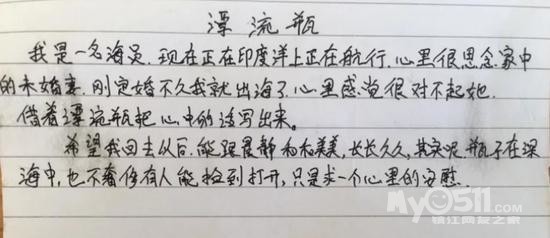 漂流瓶
我是一名海员，现在正在印度洋上正在航行，心里很思念家中
的未婚妻，刚定婚不久我就出海了，心里感觉很对不起她，
借着漂流瓶把心中的话写出来。
希望我回去以后，能跟晨静和和美美，长长久久，其实呢，瓶子在深
海中，也不奢侈有人能捡到打开，只是求一个心里的安慰。
My0511.com
镇江网友之家